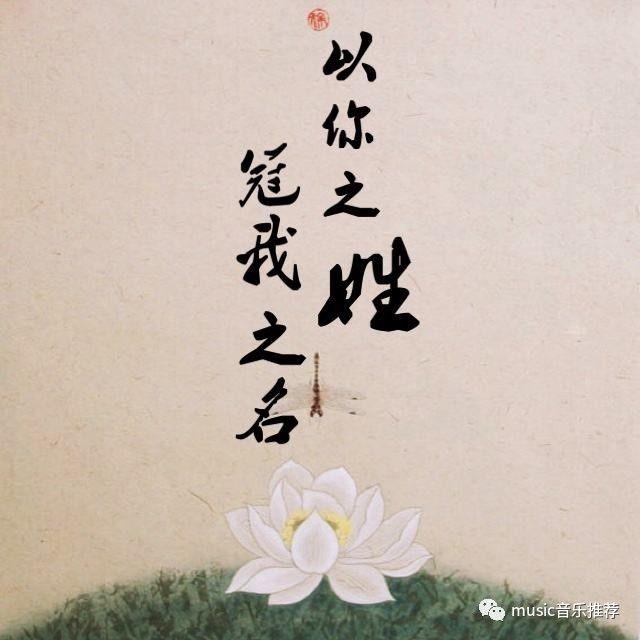 以你之姓
冠我之名
music音乐推荐